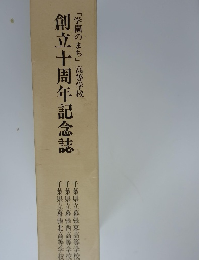 「学園のまち」高等学校
創立十周年記念誌
千葉県立幕張東高等学校
千葉県立幕張西高等学校
千葉県立幕張北高等学校